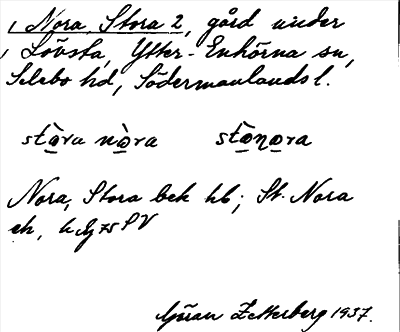 1 Nora, Stora 2, gård under
1 Lövsta, Ytter-Enhörna sn,
Selebo hd, Södermanlands l.
stòra nòra stònora
Nora, Stora bek hb; St. Nora
ek,
Göran Zetterberg 1937.